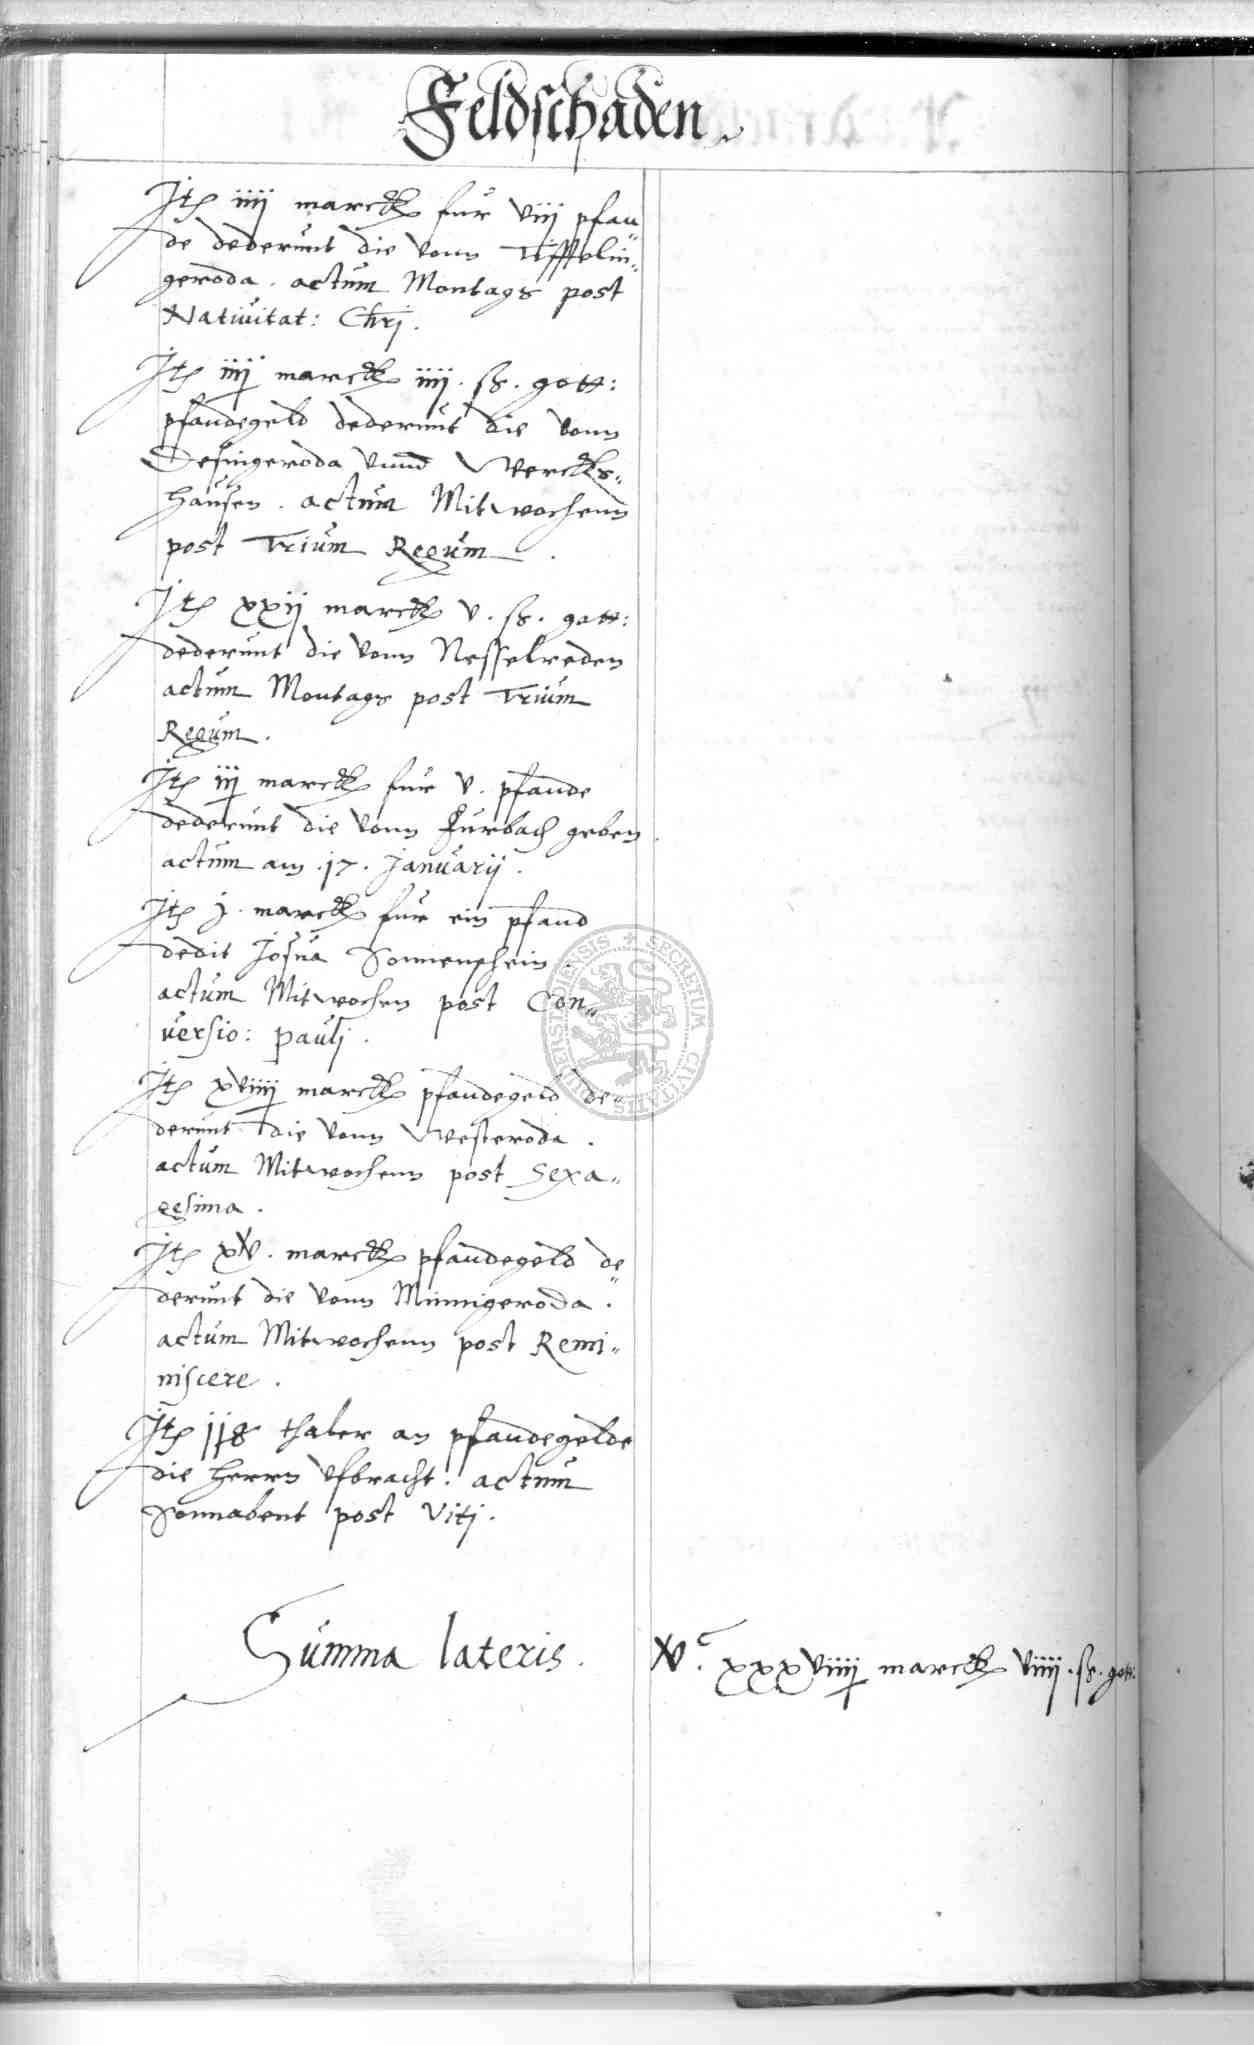 Feldschaden
Jtem iiij marck fur viij pfan„
de dederunt die vonn Tifftelin„
geroda. actum Montags post
Nativitat: Chrj.
Jtem iiij marck iiij. ß. gott:
pfandegeld dederunt die vonn
Desingeroda vnnd Wercks„
hausen. actum Mitwochenn
post Trium Regum.
Jtem xxij marck v. ß. gott:
dederunt die vonn Nesselreden
actum Montags post Trium
Regum.
Jtem iij marck fur v. pfande
dederunt die vonn Furbach geben
actum am .17. Januarij.
Jtem j. marck fur ein pfand
dedit Josua Sonnenschein.
actum Mitwochen post Con„
versio: paulj.
Jtem xviiij marck pfandegeld de„
derunt die vonn Westeroda.
actum Mitwochenn post Sexa„
gesima.
Jtem marck pfandegeld de„
derunt die vonn Minnigeroda.
actum Mitwochenn post Remi„
niscere.
Jtem 118 thaler an pfandegelde
die herrn vfbracht. actum
Sonnabent post Vitj.
SECRETUM CIVITATIS DUDERSTADENSIS
Summa lateris.
xxxviiij marck viiij. ß. gott: